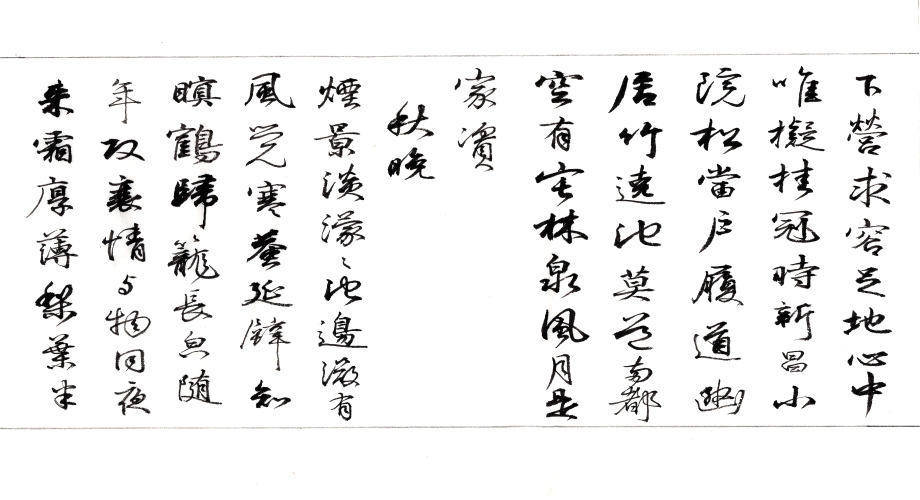 下營求容足地心中
唯擬挂冠時新昌小
院松當戶履道幽
居竹遶池莫道兩都
空有宅林泉風月是
家資
秋晚
煙景淡濛々池邊微有
風覺寒蛩近壁知
暝鶴歸籠長皃随
年改衰情与物同夜
来霜厚薄梨葉半